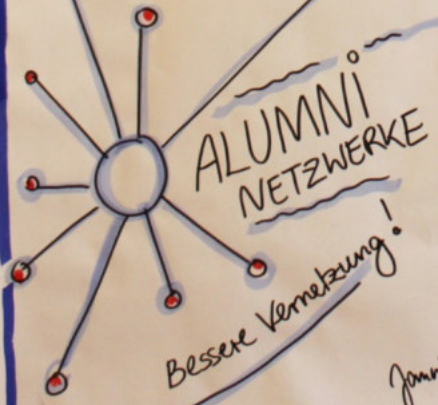 ALUMNI
NETZWERKE
Bessere Vernetzung!